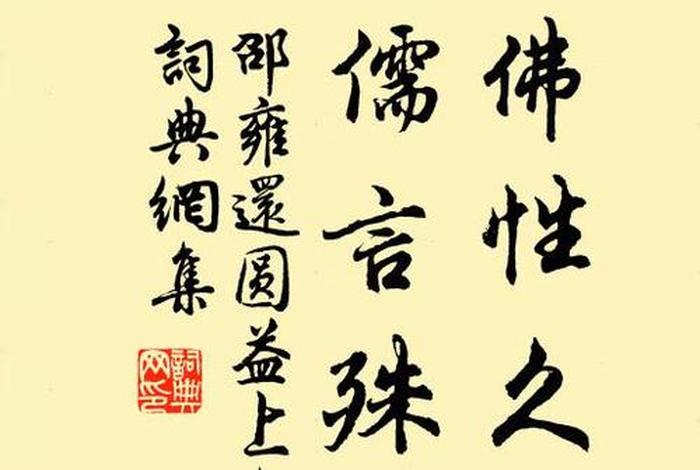 佛性久
儒言殊
邵雍還圆益上
詞典網集
詞典網印